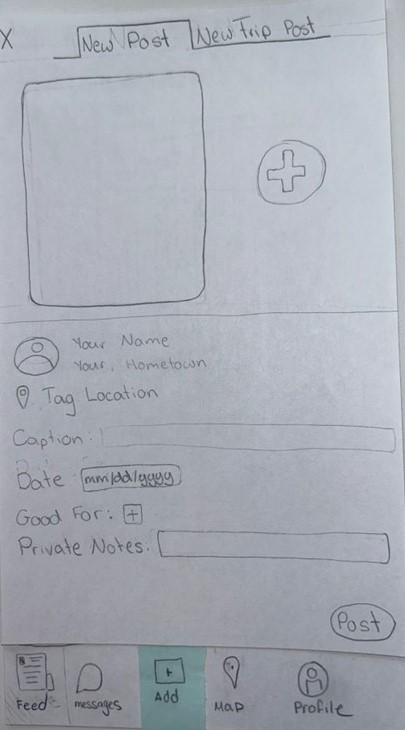 X New Post New Trip Post
Your Name
Your Hometown
Tag Location
Caption:
Date: mm/dd/yyyy
Good For: +
Private Notes:
Post
Feed messages Add Map Profile